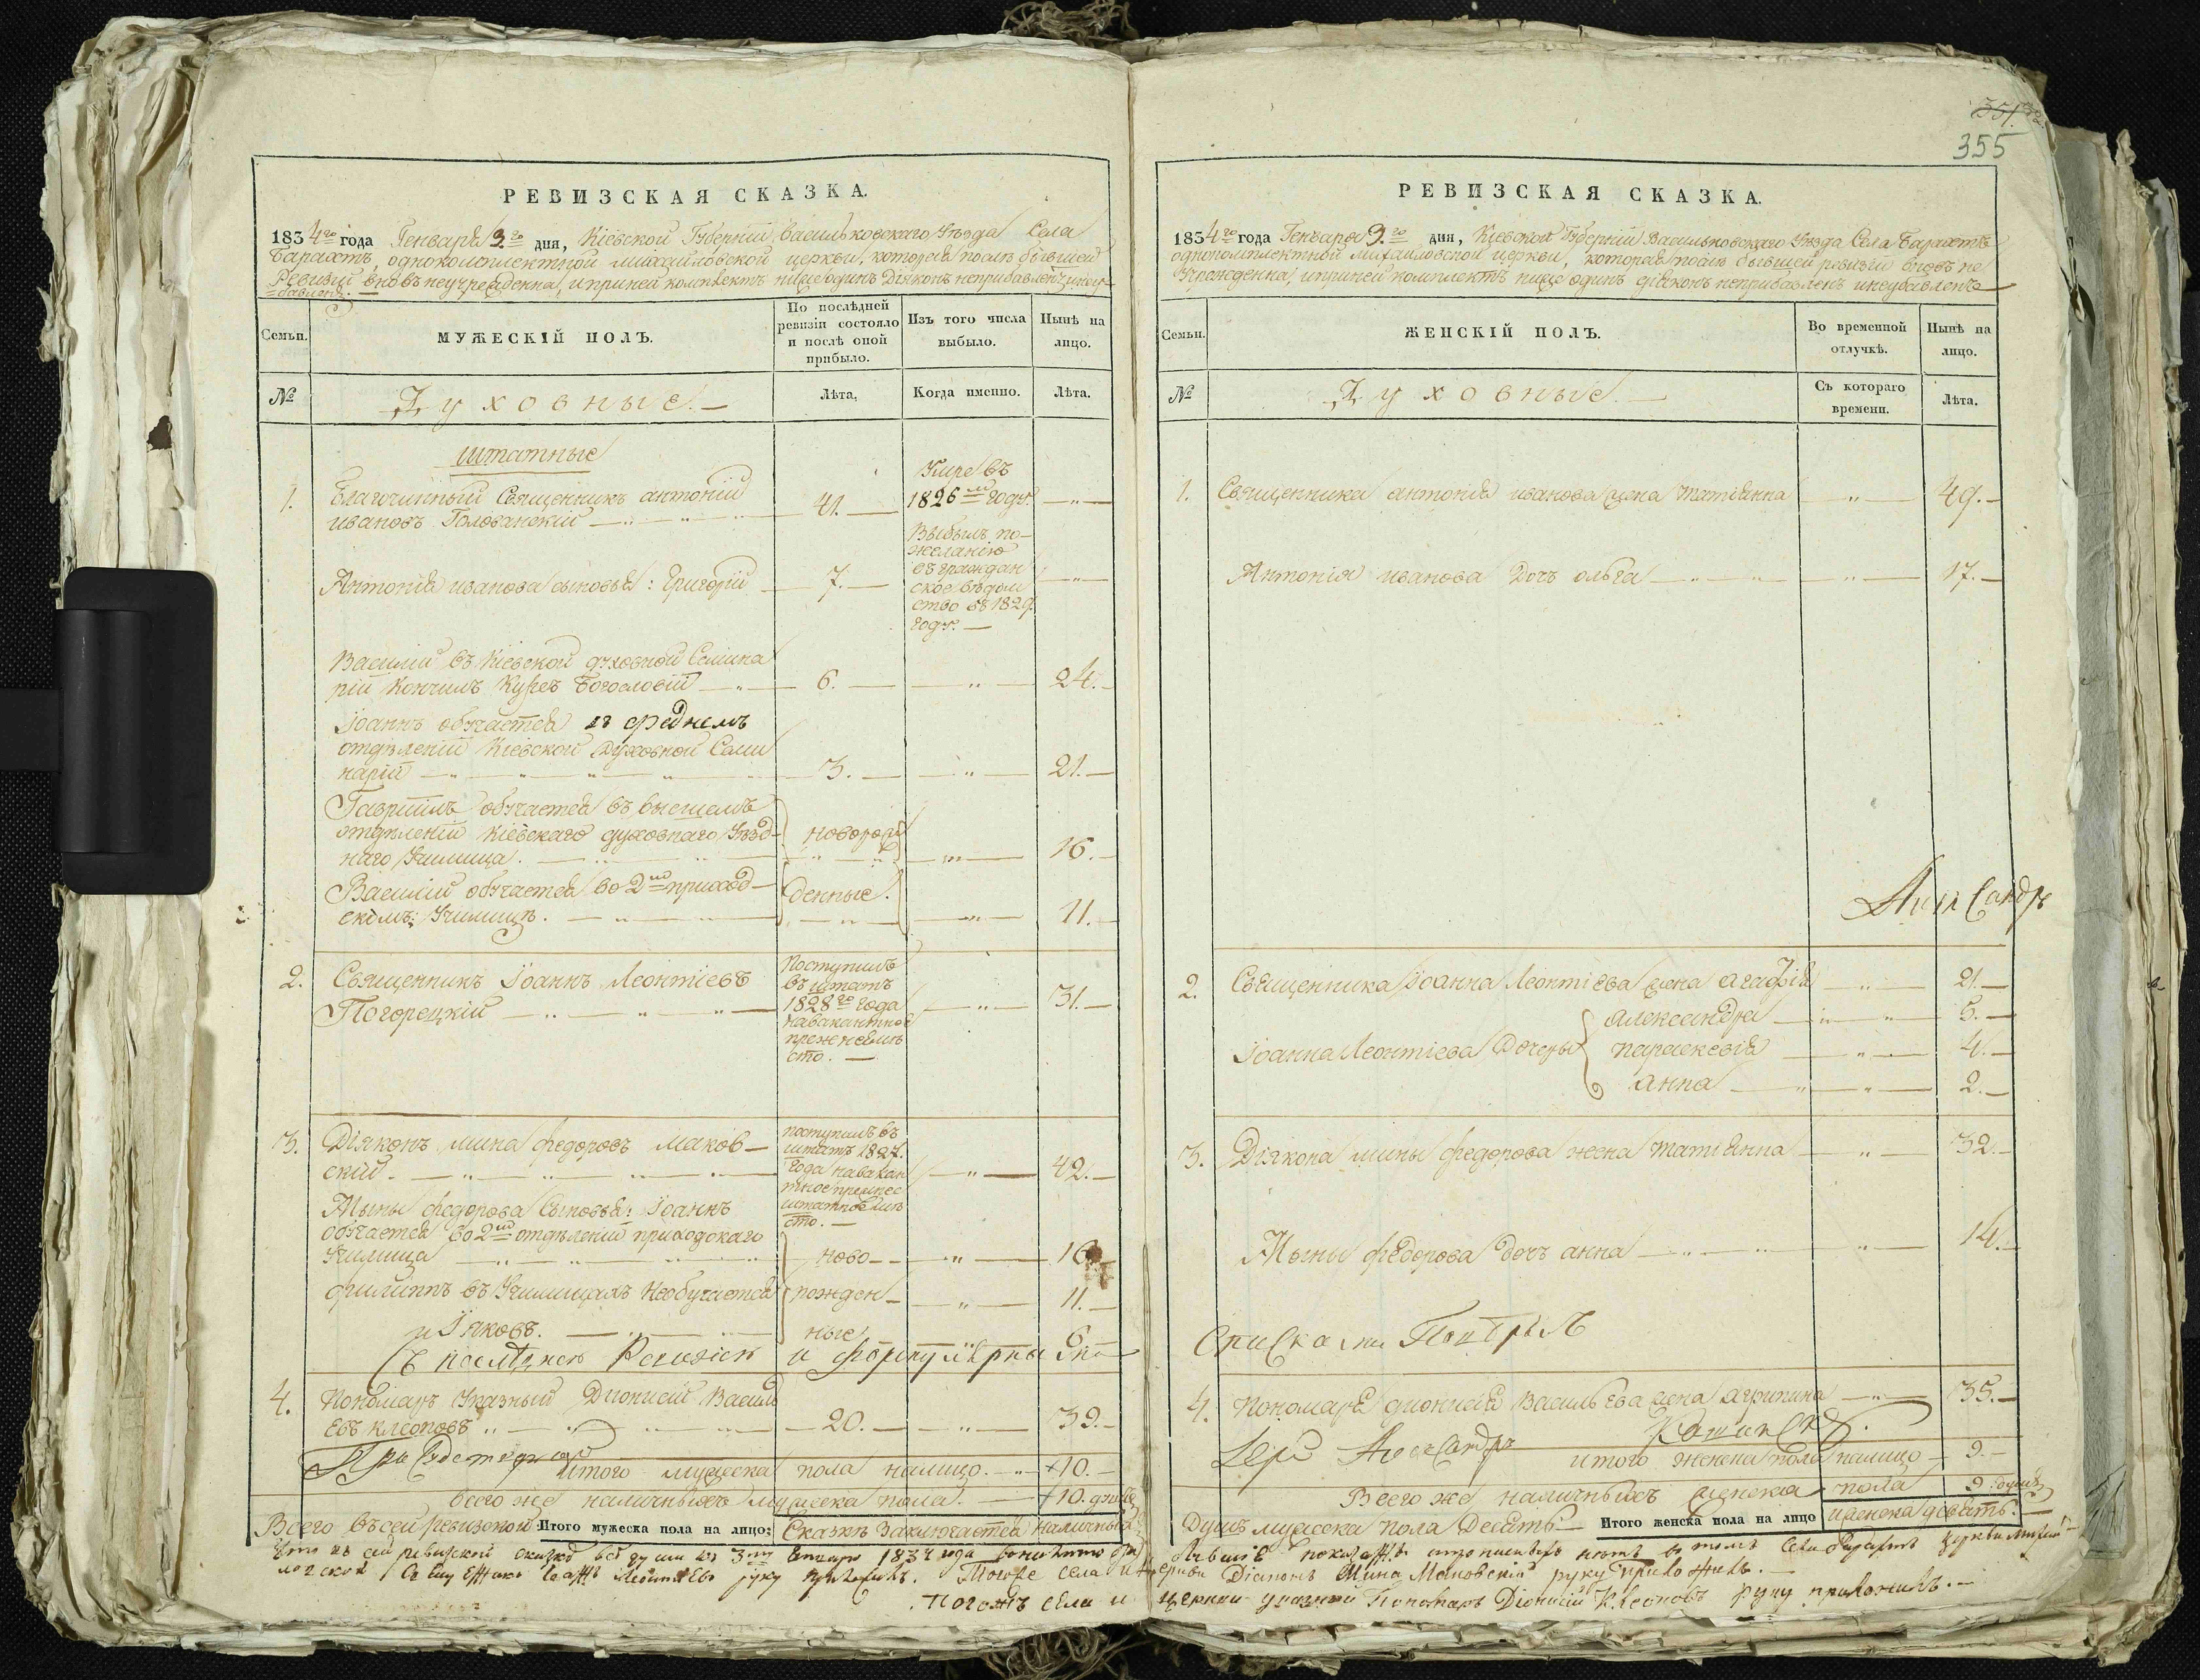 355
РЕВИЗСКАЯ СКАЗКА.
1834го года Генваря 9го дня, Кіевской Губерніи, Васильковскаго Уѣзда Села
Барахтъ однокомплектной михайловской церкви, которая послѣ бывшей
Ревизіи вновь неучреждена, и при ней комплектъ ниже одинъ Діяконъ неприбавленъ и неу-
бавленъ.
Семьи.
МУЖЕСКІЙ ПОЛЪ.
По послѣдней
ревизіи состояло
и послѣ оной
прибыло.
Изъ того числа
выбыло.
Нынѣ на
лицо.
№
Духовные.
Лѣта.
Когда именно.
Лѣта.
штатные
1. Благочинный Священникъ антоній
ивановъ Голованскій 41.
Умре въ
1826м году.
Антонія иванова сыновья: Григорій 7.
Выбылъ по
желанію
въ граждан
ское вѣдом
ство въ 1829
году.
Василій въ Кіевской духовной Семина
ріи Кончилъ Курсъ Богословіи 6. 24.
Іоаннъ обучается въ среднемъ
отдѣленіи Кіевской Духовной Семи
наріи 3. 21.
Гавріилъ обучается въ высшемъ
отдѣленіи Кіевскаго духовнаго Уѣзд-
наго Училища. новорож 16.
Василій обучается во 2мъ приход-
скомъ Училищѣ. денные. 11.
2. Священникъ Іоаннъ Леонтіевъ
Погорецкій 31.
Поступилъ
въ штатъ
1828го года
на вакантное
прежнемѣ
сто.
3. Діяконъ мина федоровъ маков-
скій 42.
поступилъ въ
штатъ 1827.
года на вакан
тное прежнее
штатное мѣ
сто.
Мины федорова Сыновья: Іоаннъ
обучается во 2мъ отдѣленіи приходскаго
Училища ново- 16
филиппъ въ Училищахъ Необучается рожден- 11.
и Яковъ. ные 6
Съ послѣднею Ревизіею и формулярны
4. Пономаръ Указный Діонисій Василь
евъ клеоповъ 20. 39.
итого мужеска пола налицо. 10.
всего же наличныхъ мужеска пола. 10. душъ
Всего въ сей ревизской Итого мужеска пола на лицо: Сказкѣ Заключается Наличныхъ
РЕВИЗСКАЯ СКАЗКА.
1834го года Генваря 9го дня, Кіевской Губерніи Васильковскаго Уѣзда Села Барахтъ
однокомплектной Михайловской церкви, которая послѣ бывшей ревизіи вновь не
Учреждена, и при ней комплектъ ниже одинъ діяконъ неприбавленъ и неубавленъ
Семьи.
ЖЕНСКІЙ ПОЛЪ.
Во временной
отлучкѣ.
Нынѣ на
лицо.
№
Духовные.
Съ котораго
времени.
Лѣта.
1. Священника антонія иванова жена татіанна 49.
Антонія иванова Дочь ольга 17.
2. Священника Іоанна Леонтіева жена агафія 21.
александра 5.
Іоанна Леонтіева Дочеры параскевія 4.
анна 2.
3. Діякона мины федорова жена татіанна 32.
Мины федорова дочь анна 14.
Списками
4. Пономаря діонисія Васильева жена агрипина 35.
итого женска пола налицо 9.
Всего же наличныхъ женска пола 9 душъ
Душъ мужеска пола Десять. Итого женска пола на лицо женска девять.
Что въ сей ревизской сказкѣ всѣ души по 3ю Генваря 1834 года
руку приложилъ. Тоей же села и церкви Діаконъ Мина Маковскій руку приложилъ.
Тогожъ села и церкви указный Пономаръ Діонисій Клеоповъ руку приложилъ.